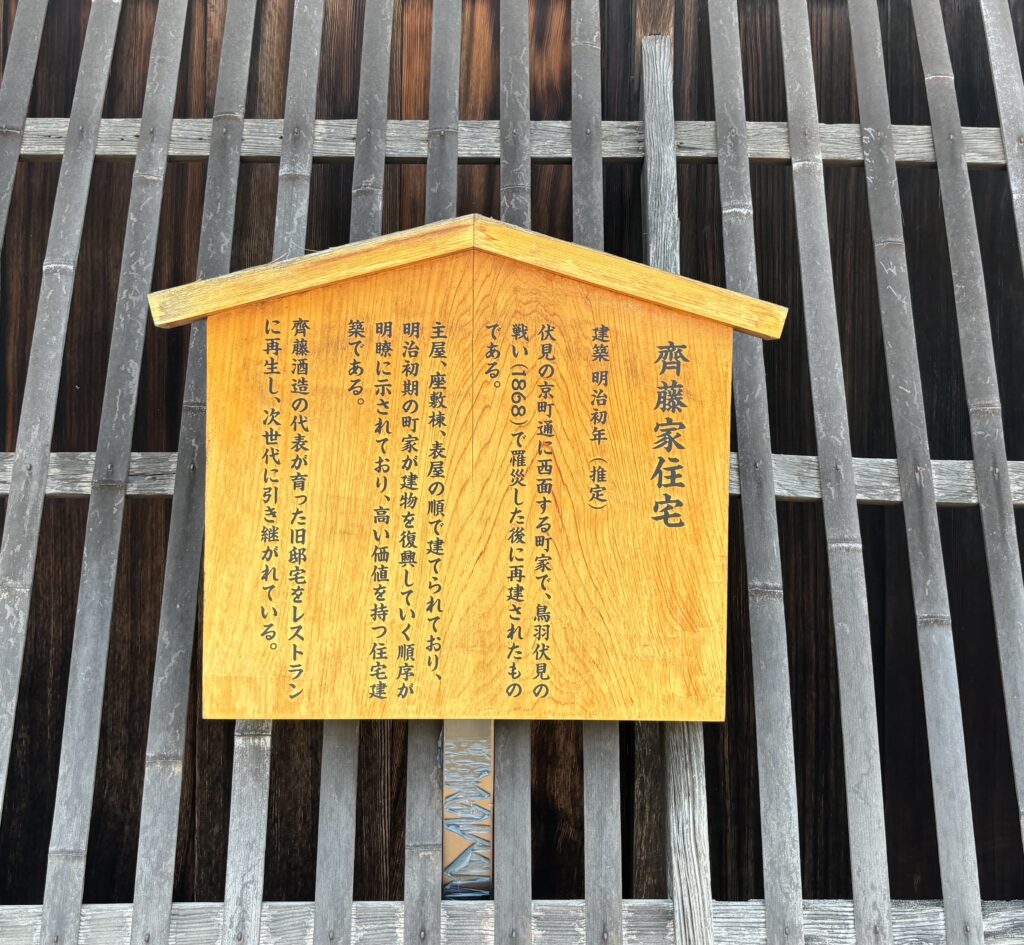 齊藤家住宅
建築 明治初年（推定）
伏見の京町通に西面する町家で、鳥羽伏見の
戦い（1868）で罹災した後に再建されたもの
である。
主屋、座敷棟、表屋の順で建てられており、
明治初期の町家が建物を復興していく順序が
明瞭に示されており、高い価値を持つ住宅建
築である。
齊藤酒造の代表が育った旧邸宅をレストラン
に再生し、次世代に引き継がれている。